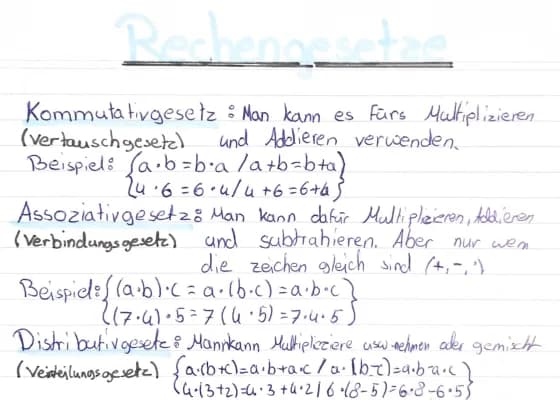 Rechengesetze
Kommutativgesetz : Man kann es Fürs Multiplizieren
(Vertauschgesetz) und Addieren verwenden.
Beispiel: {a·b=b·a / a+b=b+a}
{4·6=6·4/4+6=6+4}
Assoziativgesetz: Man kann dafür Multiplizieren, Addieren
(Verbindungsgesetz) und subtrahieren. Aber nur wenn
die zeichen gleich sind (+,-,·)
Beispiel: {(a·b)·c = a·(b·c) = a·b·c}
{(7·4)·5=7(4·5)=7·4·5}
Distributivgesetz: Mannkann Multipliziere usw nehmen oder gemischt
(Verteilungsgesetz) {a·(b+c)=a·b+a·c / a·(b-c)=a·b-a·c}
{4·(3+2)=4·3+4·2/6·(8-5)=6·8-6·5}